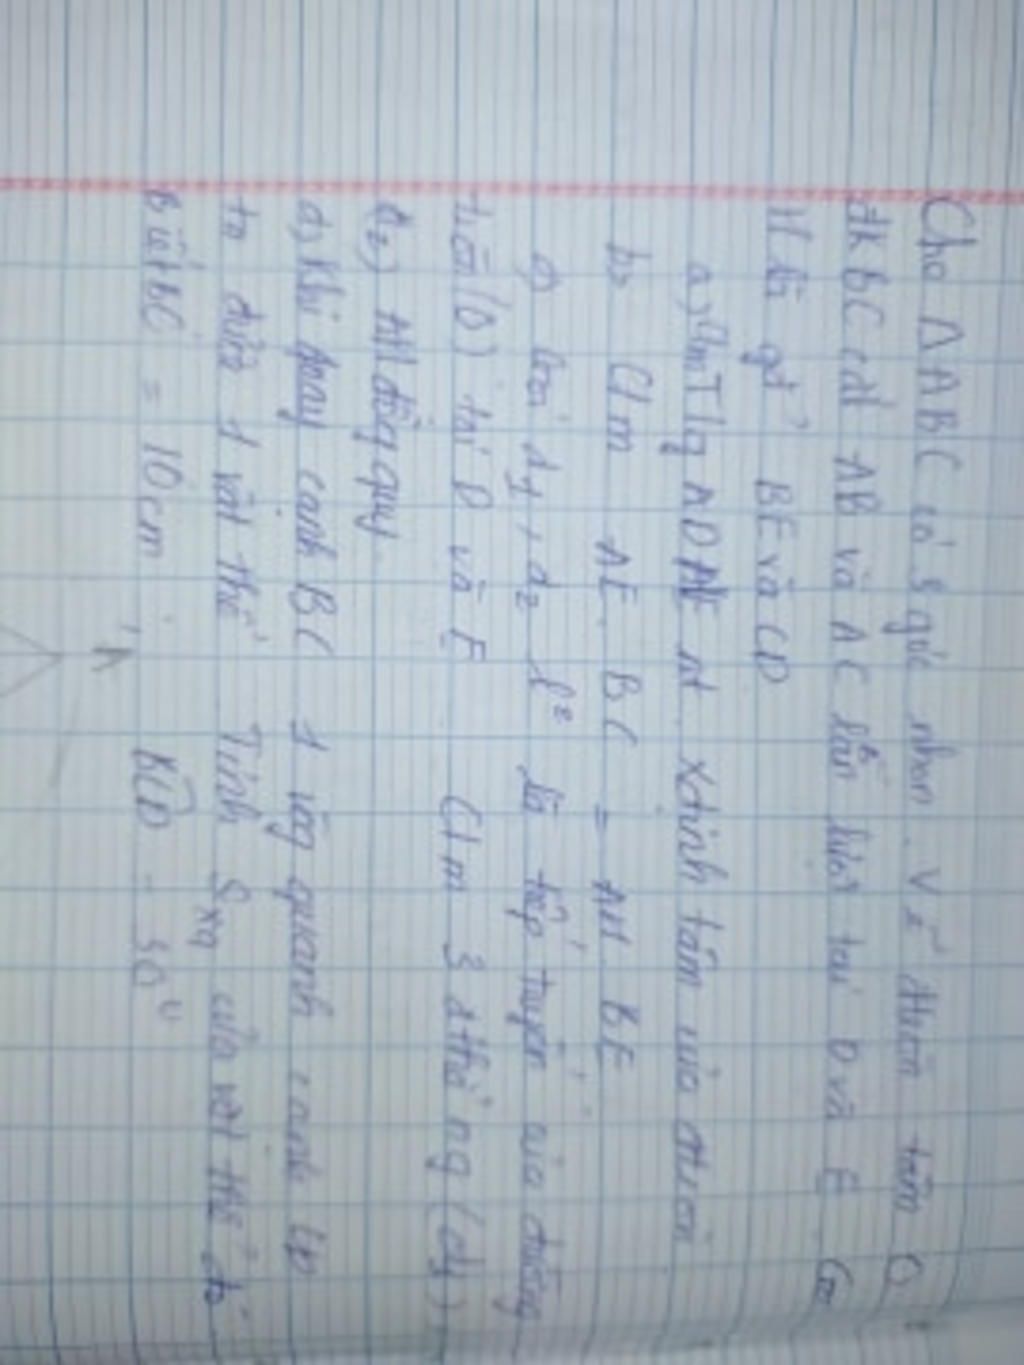 Cho ΔABC có 3 góc nhọn. Vẽ đtròn tâm O
đk BC cắt AB và AC lần lượt tại D và E. Gọi
H là gđ' BE và CD
a, Cm Tứg ADHE nt. Xđịnh tâm của đtròn
b, Cm AE. BC = AH. BE
c, Gọi d1, d2 là tiếp tuyến của đường
tròn (O) tại D và E Cm 3 đthẳng (d1)
d2) AH đồng quy
d, Khi quay cạnh BC 1 vòng quanh cạnh
ta được 1 vật thể Tính Sxq của vật thể đó
Biết BC = 10cm, BCD = 30°
A